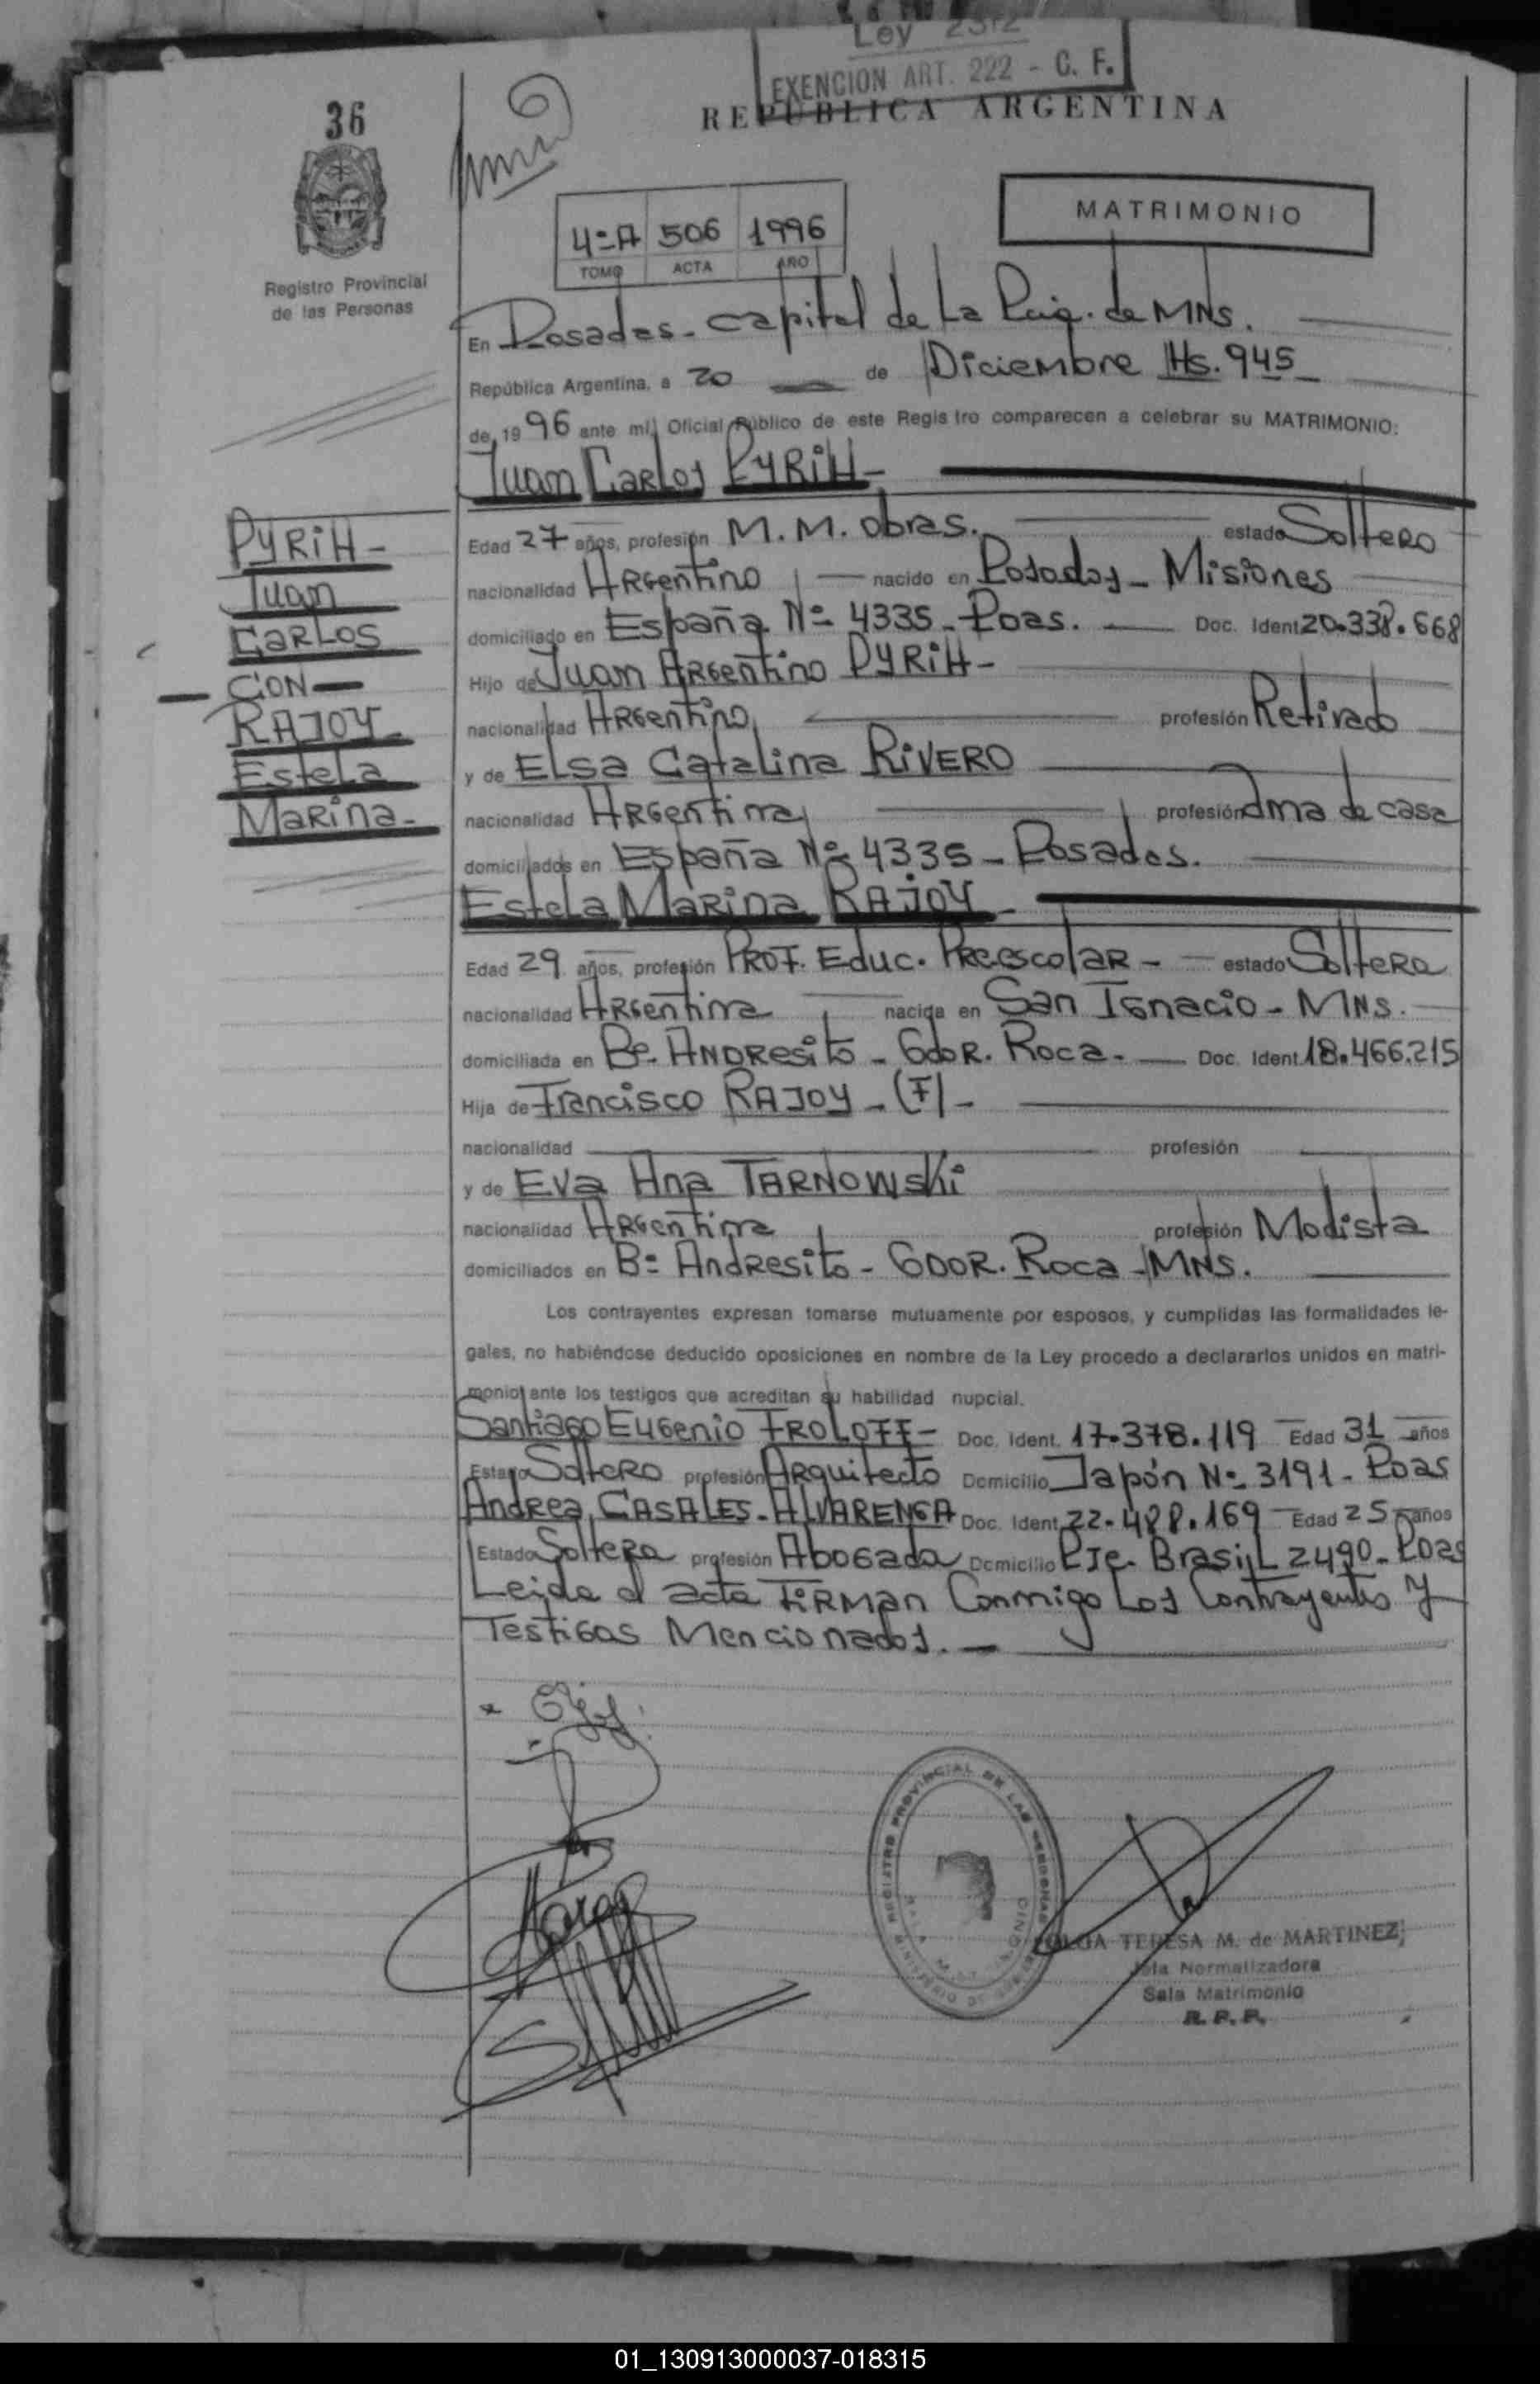 Ley 2312
EXENCION ART. 222 - C. F.
REPUBLICA ARGENTINA
36
Registro Provincial
de las Personas
MATRIMONIO
4º A 506 1996
TOMO ACTA AÑO
En Posadas - Capital de La Pcia. de MNS.
República Argentina, a 20 de Diciembre Hs. 945
de 1996 ante mi, Oficial Público de este Registro comparecen a celebrar su MATRIMONIO:
Juan Carlos PYRIH -
PYRIH -
Juan
Carlos
- CON -
RAJOY -
Estela
Marina -
Edad 27 años, profesión M. M. Obras. estado Soltero
nacionalidad Argentino nacido en Posadas - Misiones
domiciliado en España Nº 4335 - Poas. Doc. Ident. 20.338.668
Hijo de Juan Argentino PYRIH -
nacionalidad Argentino, profesión Retirado
y de Elsa Catalina RIVERO
nacionalidad Argentina, profesión Ama de casa
domiciliados en España Nº 4335 - Posadas.
Estela Marina RAJOY -
Edad 29 años, profesión Prof. Educ. Preescolar - estado Soltera
nacionalidad Argentina nacida en San Ignacio - MNS.
domiciliada en Bº Andresito - Gdor. Roca - Doc. Ident. 18.466.215
Hija de Francisco RAJOY - (F) -
nacionalidad profesión
y de Eva Ana TARNOWSKI
nacionalidad Argentina profesión Modista
domiciliados en Bº Andresito - Gdor. Roca - MNS.
Los contrayentes expresan tomarse mutuamente por esposos, y cumplidas las formalidades le-
gales, no habiéndose deducido oposiciones en nombre de la Ley procedo a declararlos unidos en matri-
monio ante los testigos que acreditan su habilidad nupcial.
Santiago Eugenio FROLOFF - Doc. Ident. 17.378.119 Edad 31 años
Estado Soltero profesión Arquitecto Domicilio Japón Nº 3191 - Poas
Andrea CASALES - ALVARENGA Doc. Ident. 22.488.169 Edad 25 años
Estado Soltera profesión Abogada Domicilio Pje. Brasil 2490 - Poas
Leida el acta firman Conmigo Los Contrayentes y
Testigos Mencionados. -
REGISTRO PROVINCIAL DE LAS PERSONAS
OLGA TERESA M. de MARTINEZ
Jefa Normalizadora
Sala Matrimonio
R. P. P.
01_130913000037-018315